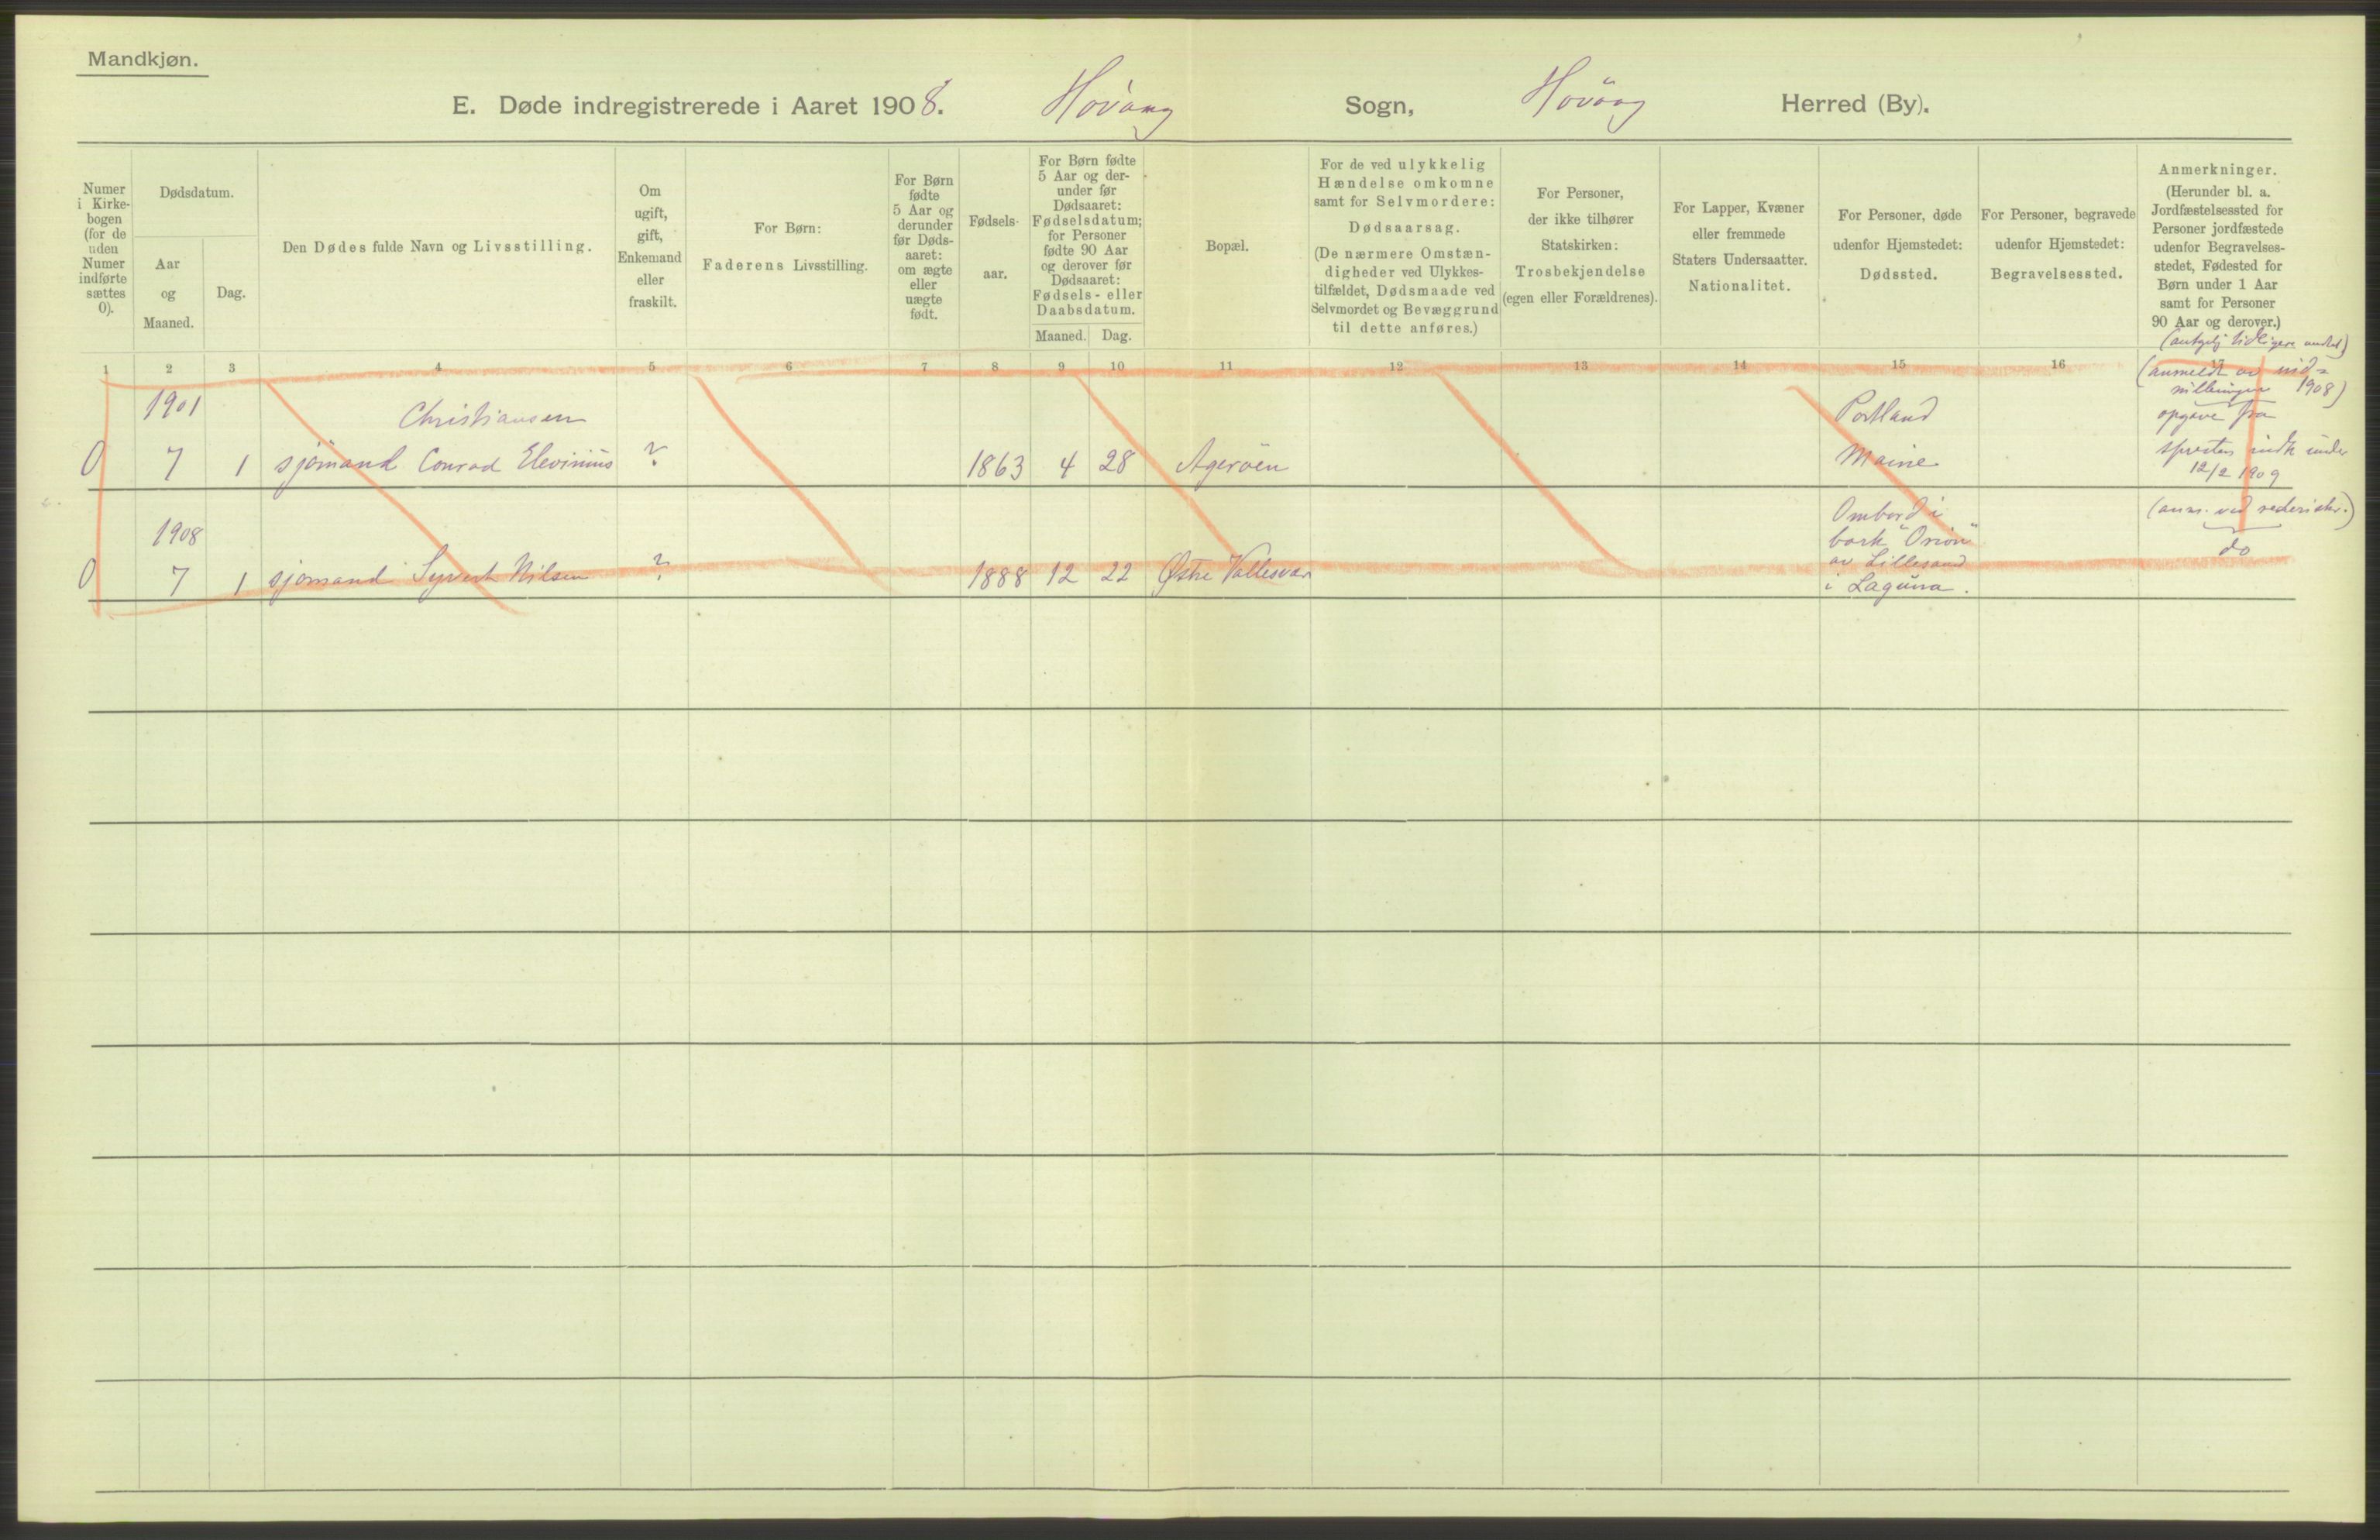 Mandkjøn.
E. Døde indregistrerede i Aaret 1908. Høvaag Sogn, Høvåag Herred (By).
Numer
i Kirke-
bogen
(for de
uden
Numer
indførte
sættes
0).
Dødsdatum.
Aar
og
Maaned.
Dag.
Den Dødes fulde Navn og Livsstilling.
Om
ugift,
gift,
Enkemand
eller
fraskilt.
For Børn:
Faderens Livsstilling.
For Børn
fødte
5 Aar og
derunder
før Døds-
aaret:
om ægte
eller
uægte
født.
Fødsels-
aar.
For Børn fødte
5 Aar og der-
under før
Dødsaaret:
Fødselsdatum;
for Personer
fødte 90 Aar
og derover før
Dødsaaret:
Fødsels- eller
Daabsdatum.
Maaned. Dag.
Bopæl.
For de ved ulykkelig
Hændelse omkomne
samt for Selvmordere:
Dødsaarsag.
(De nærmere Omstæn-
digheder ved Ulykkes-
tilfældet, Dødsmaade ved
Selvmordet og Bevæggrund
til dette anføres.)
For Personer,
der ikke tilhører
Statskirken:
Trosbekjendelse
(egen eller Forældrenes).
For Lapper, Kvæner
eller fremmede
Staters Undersaatter.
Nationalitet.
For Personer, døde
udenfor Hjemstedet:
Dødssted.
For Personer, begravede
udenfor Hjemstedet:
Begravelsessted.
Anmerkninger.
(Herunder bl. a.
Jordfæstelsessted for
Personer jordfæstede
udenfor Begravelses-
stedet, Fødested for
Børn under 1 Aar
samt for Personer
90 Aar og derover.)
1 2 3 4 5 6 7 8 9 10 11 12 13 14 15 16 17
1901
Christiansen
0 7 1 sjömand Conrad Elevinius ? 1863 4 28 Agerøen
Portland
Maine
tidligere
(anmeldt av
1908)
opgave fra
under
12/2 1909
1908
0 7 1 sjömand Syvert Nilsen ? 1888 12 22 Østre Vallesvær
Ombord i
bark "Orion"
av Lillesand
i Laguna.
(anm. ved
do